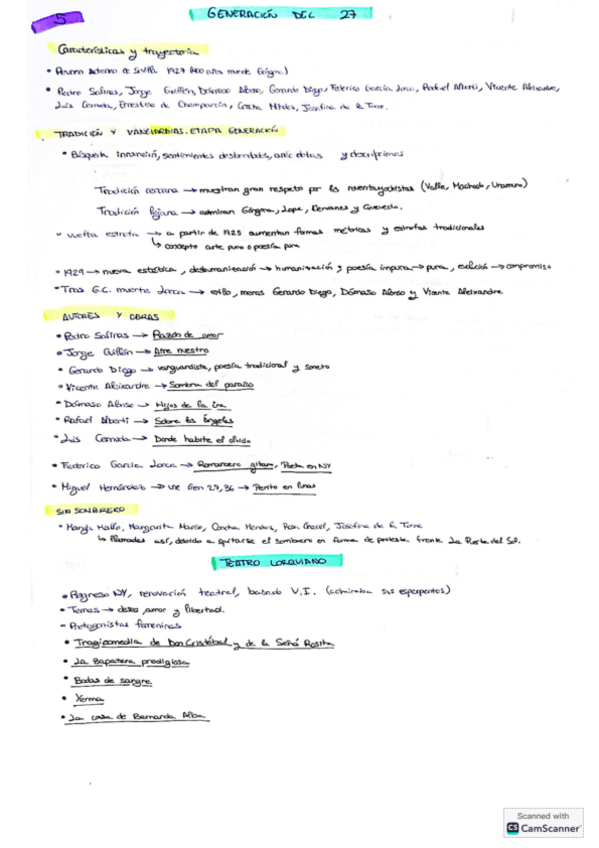 5 GENERACIÓN DEL 27
Características y trayectoria
• Ateneo de Sevilla 1927 (400 años muerte Góngora)
• Pedro Salinas, Jorge Guillén, Dámaso Alonso, Gerardo Diego, Federico García Lorca, Rafael Alberti, Vicente Aleixandre,
Luis Cernuda, Ernestina de Champourcín, Concha Méndez, Josefina de la Torre.
TRADICIÓN Y VANGUARDIAS. ETAPA GENERACIÓN
• Búsqueda innovación, sentimientos desbordados, anécdotas y descripciones
Tradición cercana → muestran gran respeto por los noventayochistas (Valle, Machado, Unamuno)
Tradición lejana → admiran Góngora, Lope, Cervantes y Quevedo.
• vuelta estrofa → a partir de 1925 aumentan formas métricas y estrofas tradicionales
↳ concepto arte puro o poesía pura
• 1929 → nueva estética, deshumanización → humanización, poesía impura → pura, evasión → compromiso
• Tras G.C. muerte Lorca → exilio, menos Gerardo Diego, Dámaso Alonso y Vicente Aleixandre
AUTORES Y OBRAS
• Pedro Salinas → Razón de amor
• Jorge Guillén → Aire nuestro
• Gerardo Diego → vanguardista, poesía tradicional y soneto
• Vicente Aleixandre → Sombra del paraíso
• Dámaso Alonso → Hijos de la ira
• Rafael Alberti → Sobre los Ángeles
• Luis Cernuda → Donde habite el olvido
• Federico García Lorca → Romancero gitano, Poeta en NY
• Miguel Hernández → une Gen 27, 36 → Perito en lunas
SIN SOMBRERO
• Maruja Mallo, Margarita Manso, Concha Méndez, Rosa Chacel, Josefina de la Torre
↳ llamadas así, debido a quitarse el sombrero en forma de protesta frente La Puerta del Sol.
TEATRO LORQUIANO
• Regreso NY, renovación teatral, basado V.I. (admiraba sus esperpentos)
• Temas → deseo, amor y libertad.
- Protagonistas femeninas
• Tragicomedia de Don Cristóbal y de la Señá Rosita
• La zapatera prodigiosa
• Bodas de sangre
• Yerma
• La casa de Bernarda Alba
Scanned with
CS CamScanner